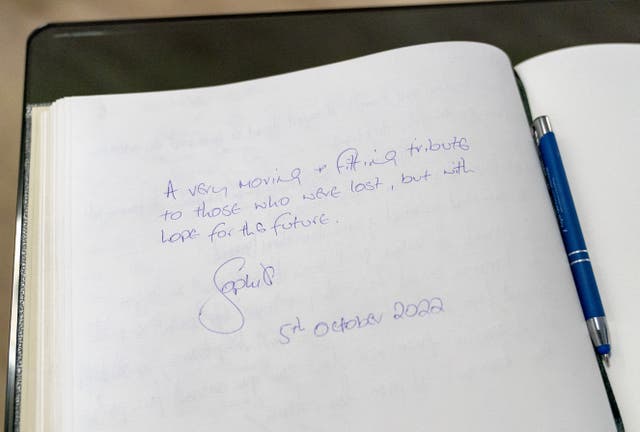 A very moving + fitting tribute
to those who were lost, but with
hope for the future.
Sophie
5th October 2022